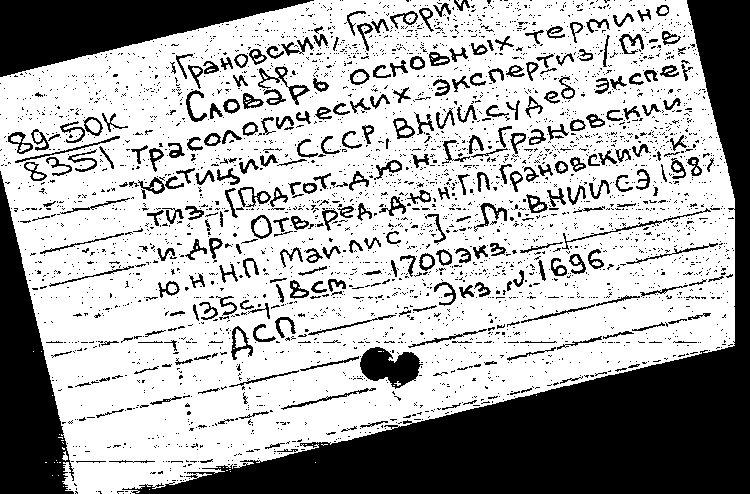 Грановский, Григорий
и др.
Словарь основных термино
трасологических экспертиз / М-в
89-50К
8351
юстиции СССР, ВНИИ судеб. экспер
тиз; [Подгот. д.ю.н. Г.Л. Грановский
и др.; Отв. ред. д.ю.н. Г.Л. Грановский, к.
ю.н. Н.П. Майлис] - М.: ВНИИСЭ, 198
- 135с., 18см - 1700экз.
ДСП. Экз. № 1696